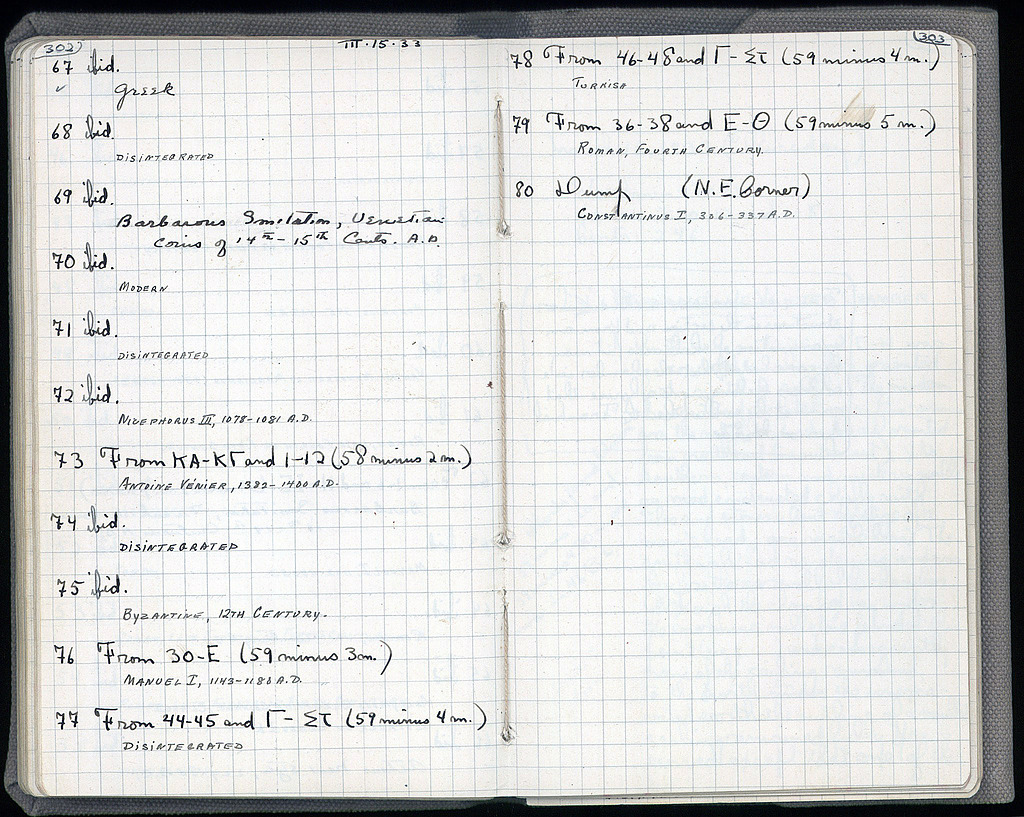 302
III·15·33
67 ibid.
✓
Greek
68 ibid.
DISINTEGRATED
69 ibid.
Barbarous Imitation, Venetian
Coins of 14th–15th Cents. A.D.
70 ibid.
MODERN
71 ibid.
DISINTEGRATED
72 ibid.
NICEPHORUS III, 1078-1081 A.D.
73 From ΚΑ-ΚΓ and 1-12 (58 minus 2 m.)
ANTOINE VÉNIER, 1382-1400 A.D.
74 ibid.
DISINTEGRATED
75 ibid.
BYZANTINE, 12TH CENTURY.
76 From 30-E (59 minus 3m.)
MANUEL I, 1143-1180 A.D.
77 From 44-45 and Γ- ΣΤ (59 minus 4 m.)
DISINTEGRATED
303
78 From 46-48 and Γ- ΣΤ (59 minus 4 m.)
TURKISH
79 From 36-38 and E-Θ (59 minus 5 m.)
ROMAN, FOURTH CENTURY.
80 Dump (N.E. Corner)
CONSTANTINUS I, 306-337 A.D.